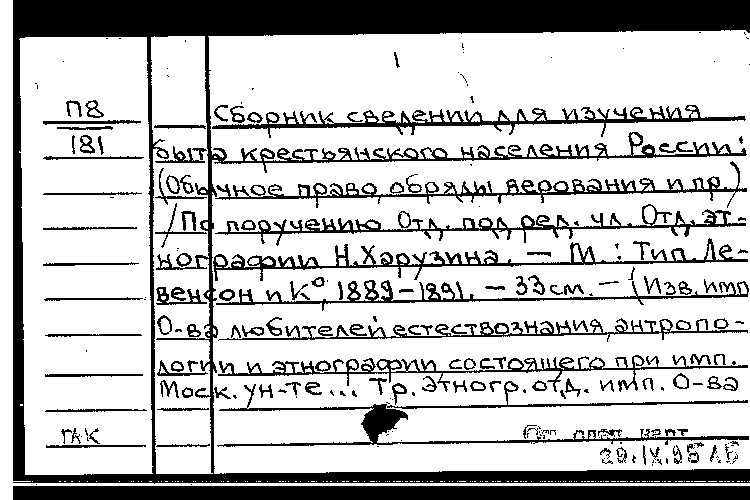 П8
181
Сборник сведений для изучения
быта крестьянского населения России:
(Обычное право, обряды, верования и пр.)
/По поручению Отд. под ред. чл. Отд. эт-
нографии Н.Харузина. — М. : Тип. Ле-
венсон и К°, 1889-1891. — 33см. — (Изв. имп
О-ва любителей естествознания, антропо-
логии и этнографии состоящего при имп.
Моск. ун-те... Тр. этногр. отд. имп. О-ва
ГАК
29.IX.95